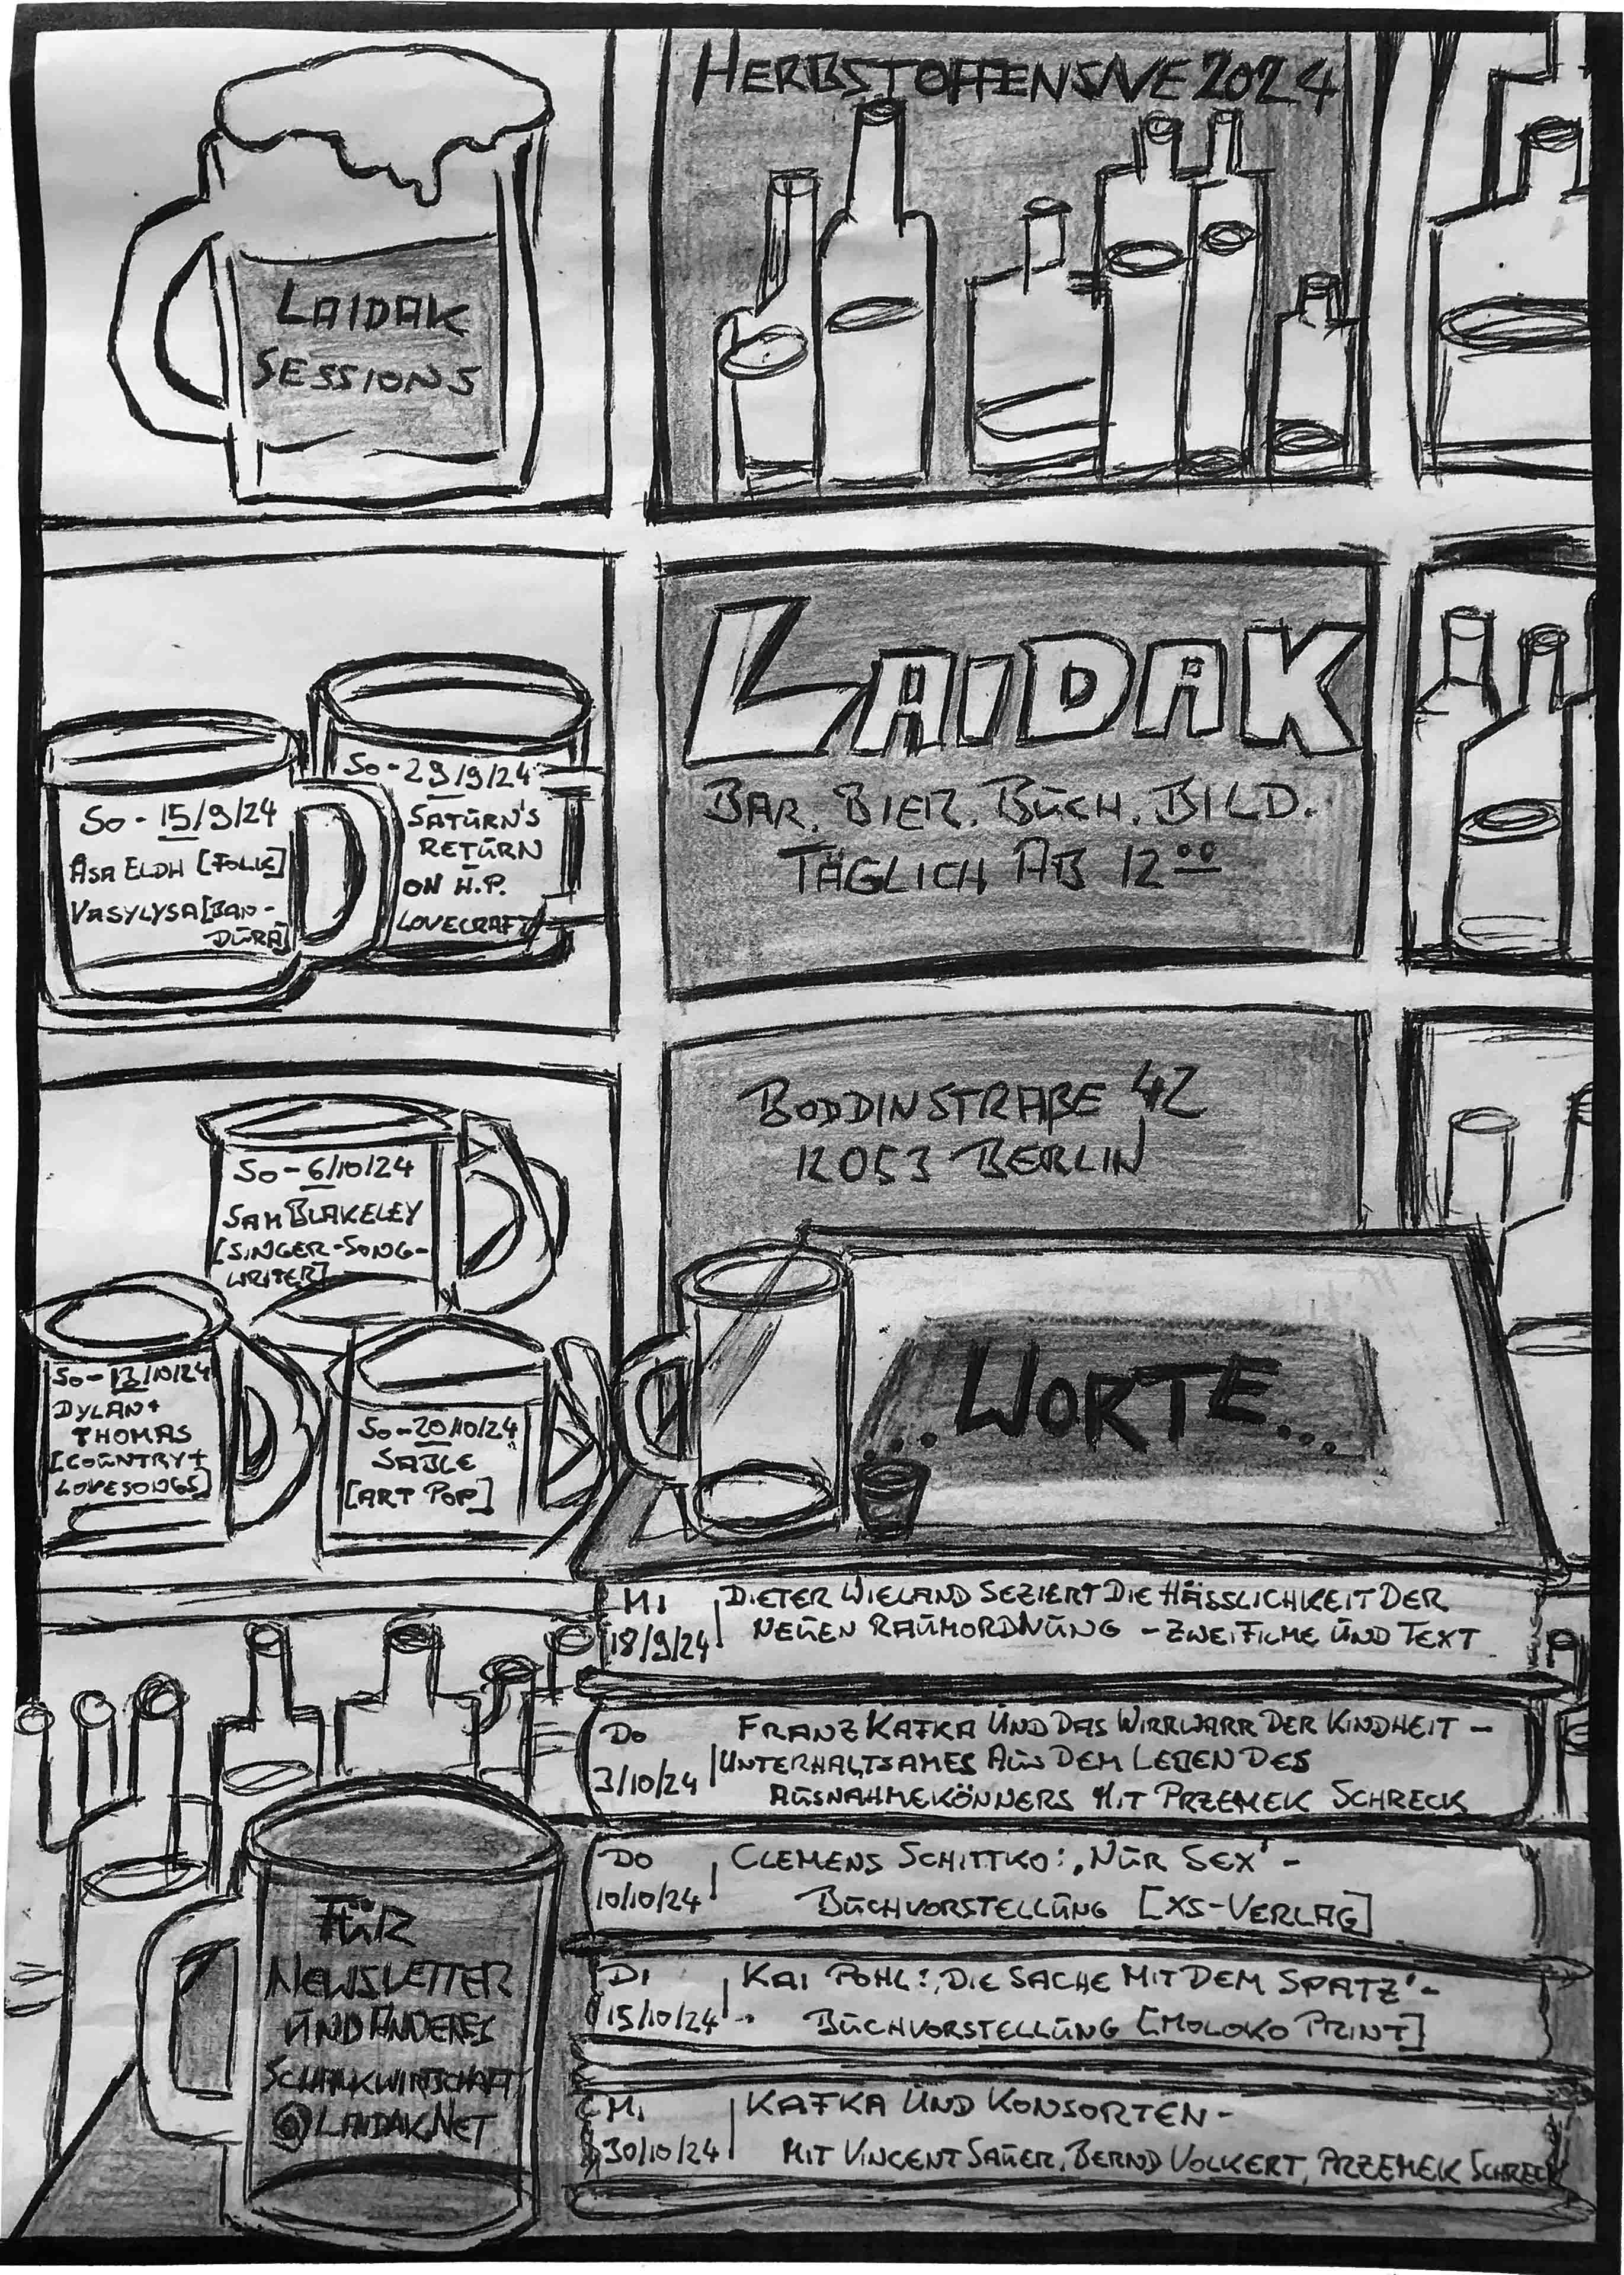 HERBSTOFFENSIVE 2024
LAIDAK
SESSIONS
LAIDAK
BAR. BIER. BUCH. BILD.
TÄGLICH AB 12°°
So - 15/9/24
ÅSA ELDH [FOLK]
VASYLYSA [BAN-
DURA]
So - 29/9/24
SATURN'S
RETURN
ON H.P.
LOVECRAFT
BODDINSTRAßE 42
12053 BERLIN
So - 6/10/24
SAM BLAKELEY
[SINGER-SONG-
WRITER]
So - 13/10/24
DYLAN +
THOMAS
[COUNTRY +
LOVESONGS]
So - 20/10/24
SABLE
[ART POP]
...WORTE...
MI
18/9/24
DIETER WIELAND SEZIERT DIE HÄSSLICHKEIT DER
NEUEN RAUMORDNUNG - ZWEI FILME UND TEXT
Do
3/10/24
FRANZ KAFKA UND DAS WIRRWARR DER KINDHEIT -
UNTERHALTSAMES AUS DEM LEBEN DES
AUSNAHMEKÖNNERS MIT PRZEMEK SCHRECK
DO
10/10/24
CLEMENS SCHITTKO: ,NUR SEX' -
BUCHVORSTELLUNG [XS-VERLAG]
DI
15/10/24
KAI POHL: ,DIE SACHE MIT DEM SPATZ' -
BUCHVORSTELLUNG [MOLOKO PRINT]
MI
30/10/24
KAFKA UND KONSORTEN -
MIT VINCENT SAUER, BERND VOLKERT, PRZEMEK SCHRECK
FÜR
NEWSLETTER
UND ANDERES
SCHANKWIRTSCHAFT
@LAIDAK.NET